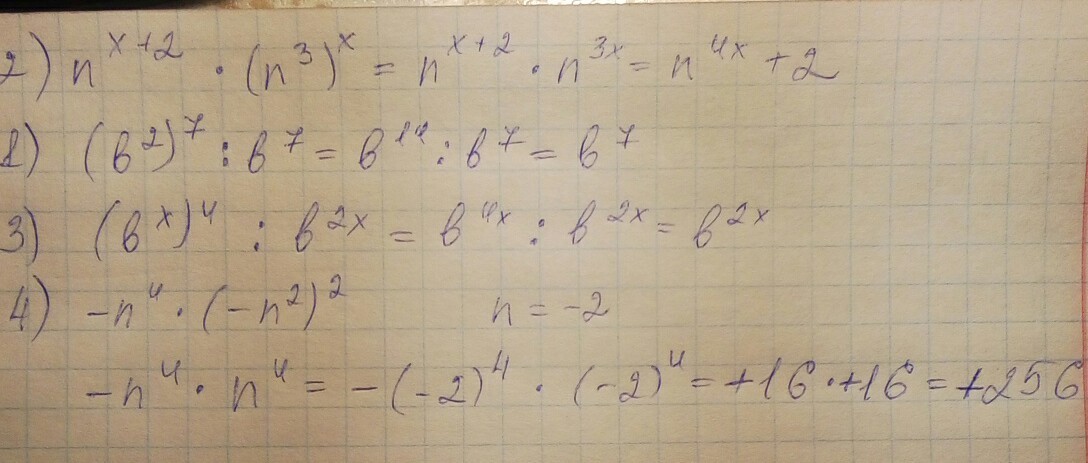 2) n^{x+2} · (n^3)^x = n^{x+2} · n^{3x} = n^{4x} + 2
1) (в^2)^7 : в^7 = в^{14} : в^7 = в^7
3) (в^x)^4 : в^{2x} = в^{4x} : в^{2x} = в^{2x}
4) -n^4 · (-n^2)^2 n = -2
-n^4 · n^4 = -(-2)^4 · (-2)^4 = +16 · +16 = +256